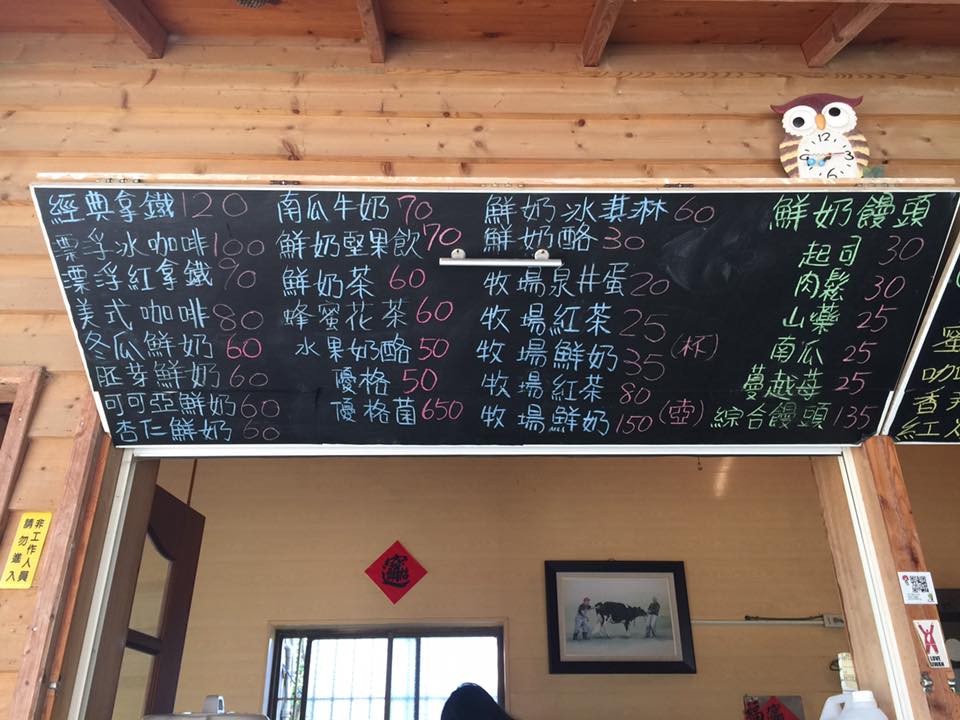 經典拿鐵 120
漂浮冰咖啡 100
漂浮紅拿鐵 90
美式咖啡 80
冬瓜鮮奶 60
胚芽鮮奶 60
可可亞鮮奶 60
杏仁鮮奶 60
南瓜牛奶 70
鮮奶堅果飲 70
鮮奶茶 60
蜂蜜花茶 60
水果奶酪 50
優格 50
優格菌 650
鮮奶冰淇淋 60
鮮奶酪 30
牧場泉井蛋 20
牧場紅茶 25
牧場鮮奶 35 (杯)
牧場紅茶 80
牧場鮮奶 150 (壺)
鮮奶饅頭
起司 30
肉鬆 30
山藥 25
南瓜 25
蔓越莓 25
綜合饅頭 135
咖
香
紅
12
3
6
9
非工作人員
請勿進入
LOVE